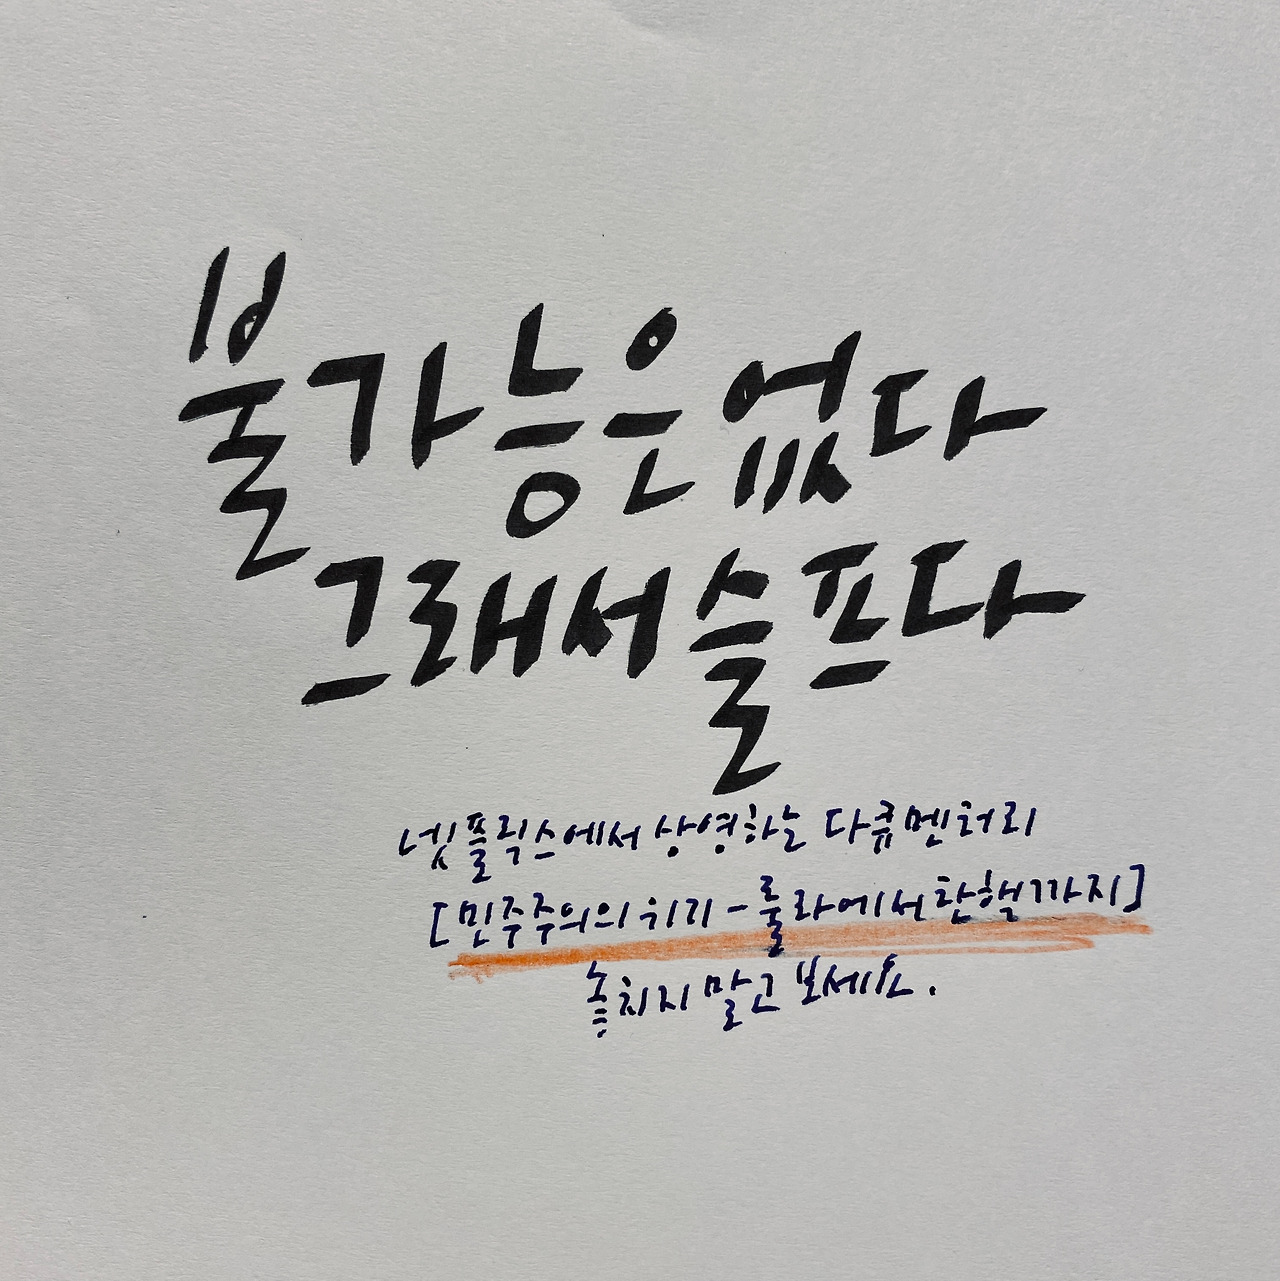 불가능은 없다
그래서 슬프다
넷플릭스에서 상영하는 다큐멘터리
[민주주의의 위기-룰라에서 탄핵까지]
놓치지 말고 보세요.